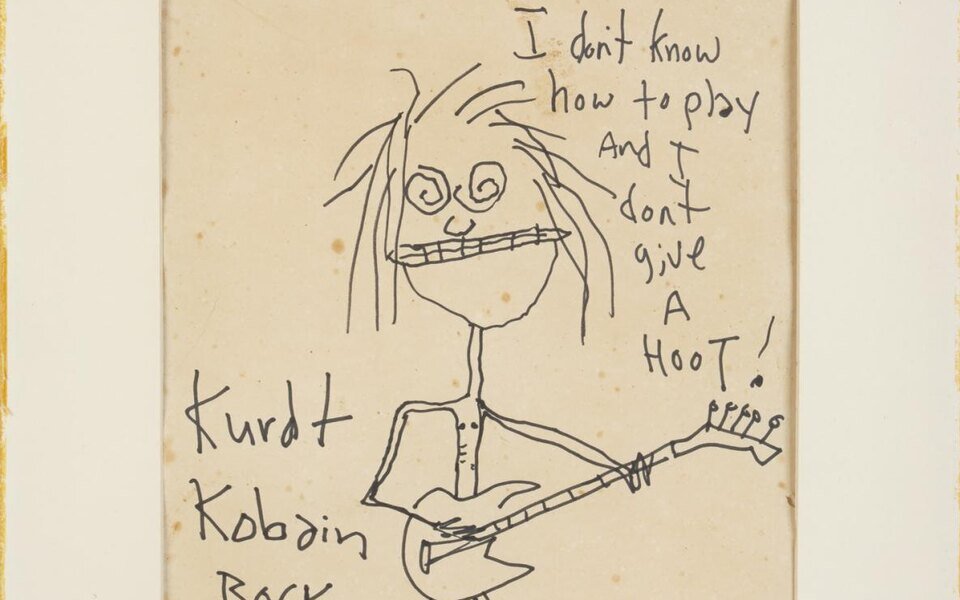 I don't know
how to play
And I
dont
give
A
HooT!
Kurdt
Kobain
Rock